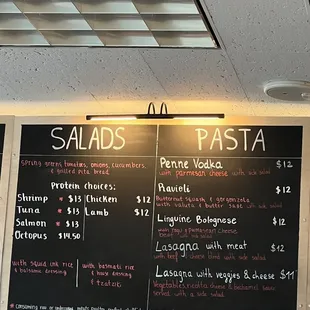 SALADS
Spring greens, tomatoes, onions, cucumbers
& grilled pita bread
Protein choices:
Shrimp $13
Tuna $13
Salmon $13
Octopus $14.50
Chicken $12
Lamb $12
with squid ink rice
& balsamic dressing
with basmati rice
& house dressing
& tzatziki
PASTA
Penne Vodka $12
with parmesan cheese with side salad
Ravioli $12
Butternut squash & gorgonzola
with walnuts & butter sage with side salad
Linguine Bolognese $12
with ragu & parmesan cheese
beef with side salad
Lasagna with meat $12
with beef, cheese blend with side salad
Lasagna with veggies & cheese $11
Vegetables, ricotta cheese & bechamel sauce
served with a side salad